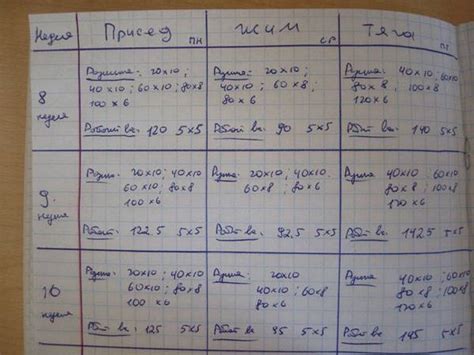 Неделя Присед ПН Жим СР Тяга ПТ
8 неделя
Разминка: 20x10;
40x10; 60x10; 80x8
100x6
Рабочий вес: 120 5x5
Размин: 20x10;
40x10; 60x8;
80x6
Рабочий вес: 90 5x5
Размин: 40x10; 60x10
80x8; 100x8
120x6
Рабоч вес: 140 5x5
9. неделя
Размин: 20x10; 40x10
60x10; 80x8
100x6
Рабоч вес: 122.5 5x5
Размин: 20x10; 40x10.
60x8; 80x6
Рабоч вес: 92,5 5x5
Размин 40x10 60x10
80x8; 100x8
120x6
Рабоч вес: 142.5 5x5
10 неделя
Размин: 20x10; 40x10
60x10; 80x8
100x6
Рабоч вес: 125 5x5
Размин: 20x10
40x10; 60x8
80x6
Рабоч вес: 95 5x5
Размин 40x10; 60x10
80x8; 100x8
120x6
Рабоч вес: 145 5x5